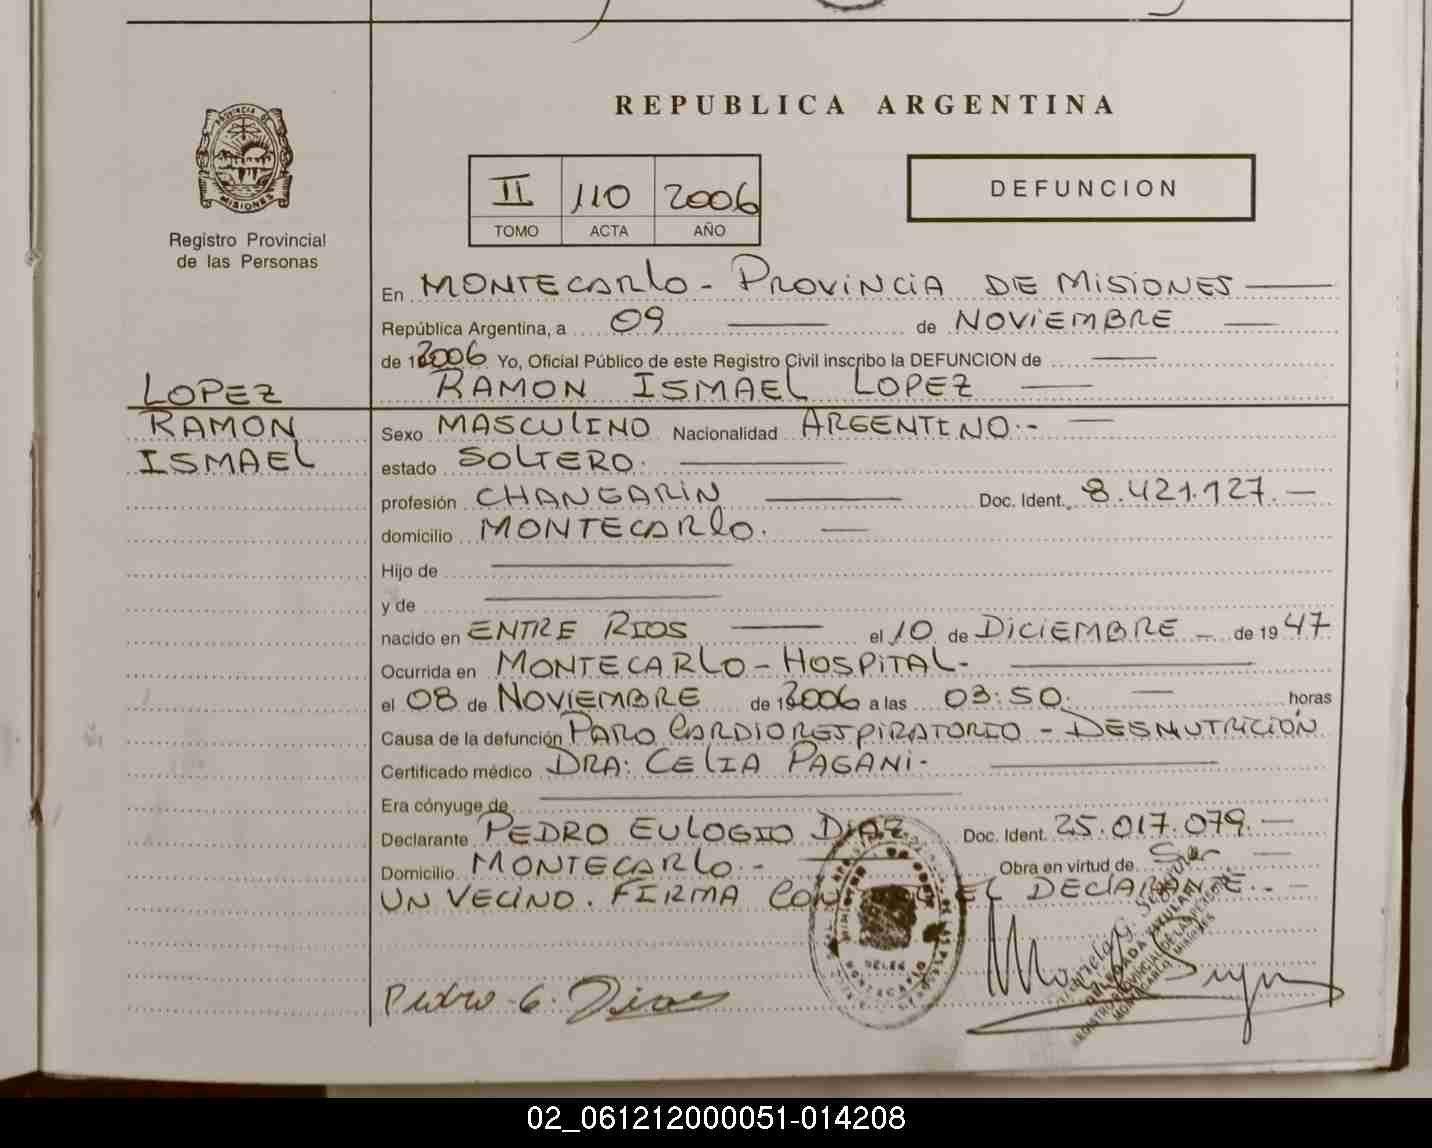 REPUBLICA ARGENTINA
PROVINCIA DE
MISIONES
Registro Provincial
de las Personas
II 110 2006
TOMO ACTA AÑO
DEFUNCION
En MONTECARLO - PROVINCIA DE MISIONES
República Argentina, a 09 de NOVIEMBRE
de 2006 Yo, Oficial Público de este Registro Civil inscribo la DEFUNCION de
RAMON ISMAEL LOPEZ
LOPEZ
RAMON
ISMAEL
Sexo MASCULINO Nacionalidad ARGENTINO.-
estado SOLTERO.
profesión CHANGARIN Doc. Ident. 8.421.127.-
domicilio MONTECARLO.
Hijo de
y de
nacido en ENTRE RIOS el 10 de DICIEMBRE - de 1947
Ocurrida en MONTECARLO - HOSPITAL-
el 08 de NOVIEMBRE de 2006 a las 03:50. horas
Causa de la defunción PARO CARDIORESPIRATORIO - DESNUTRICIÓN
Certificado médico DRA: CELIA PAGANI-
Era cónyuge de
Declarante PEDRO EULOGIO DIAZ Doc. Ident. 25.017.079.-
Domicilio MONTECARLO.- Obra en virtud de Ser
UN VECINO. FIRMA EL DECLARANTE.-
Pedro E. Diaz
02_061212000051-014208